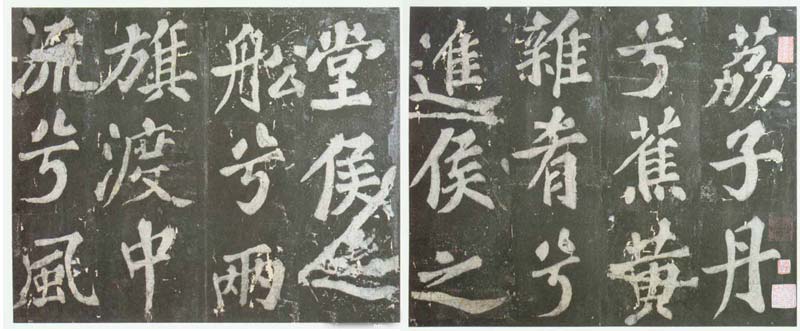 荔子丹
兮蕉黄
雜肴兮
進侯之
堂侯之
舩兮兩
旗渡中
流兮風